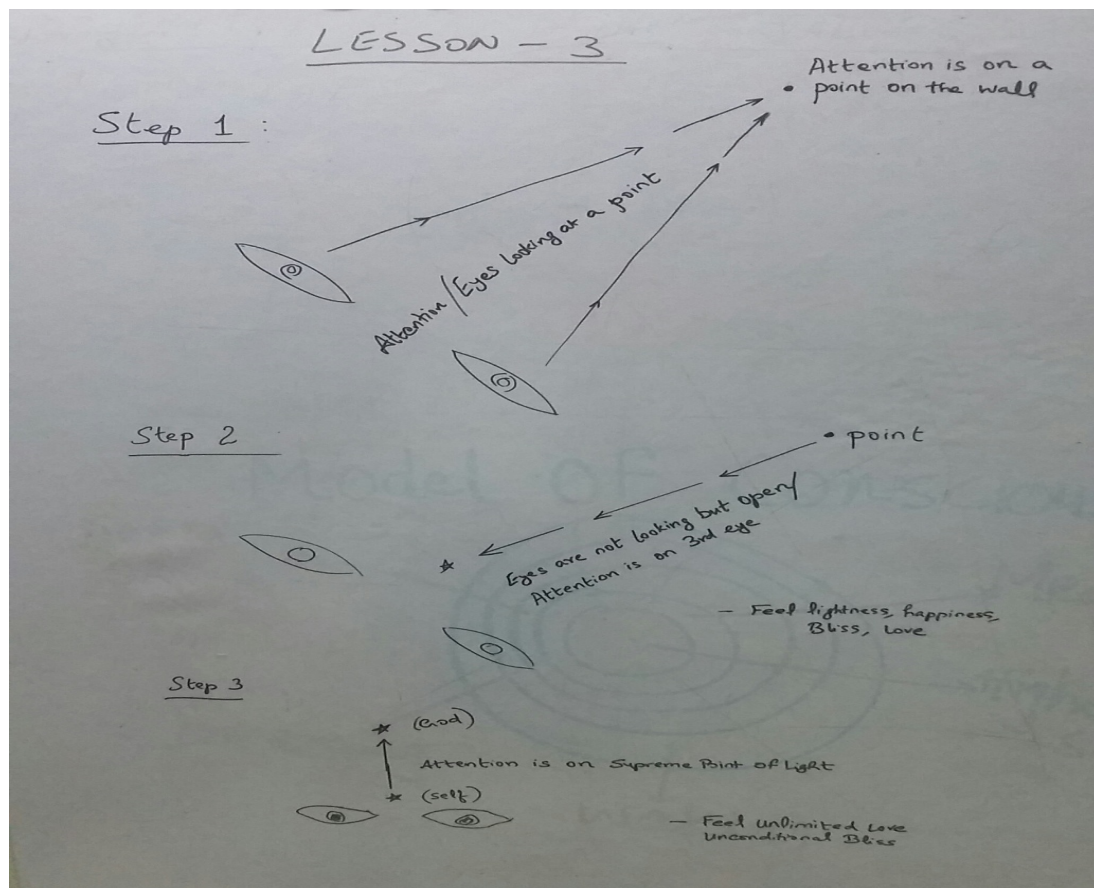 LESSON - 3
Attention is on a
point on the wall
Step 1 :
Attention/Eyes looking at a point
Step 2
point
Eyes are not looking but open/
Attention is on 3rd eye
- Feel lightness, happiness,
Bliss, Love
Step 3
(God)
Attention is on Supreme Point of Light
(self)
- Feel Unlimited Love
Unconditional Bliss
Model OF